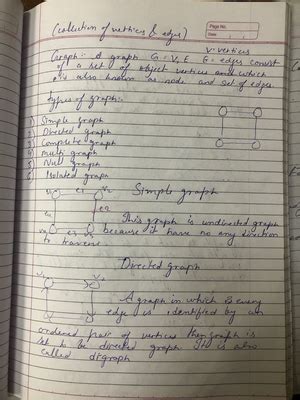 Page No.
Date
(collection of vertices & edges)
V: vertices
Graph: A graph G = V, E E = edges consist
of a set of object vertices and which
is also known as node and set of edges
Types of graph:-
1) Simple graph
2) Directed graph
3) Complete graph
4) Multi graph
5) Null graph
6) Isolated graph
Simple graph
e1 v2
e2
This graph is undirected graph
because it have no any direction
to traverse.
Directed graph
A graph in which every
edge is identified by an
ordered pair of vertices then graph is
set to be directed graph. It is also
called digraph